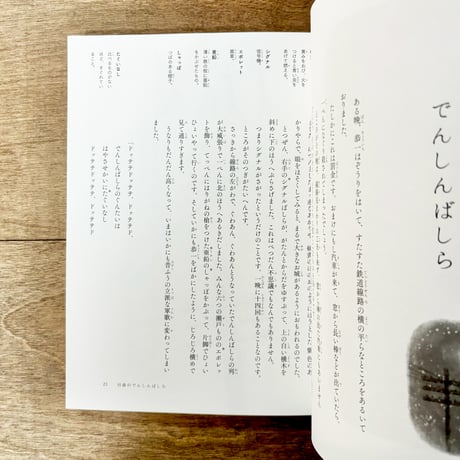 でんしんばしら
ある晩、恭一はぞうりをはいて、すたすた鉄道線路の横の平らなところをあるいて
おりました。
たしかにこれは罰金です。おまけにもし汽車が来て、窓から長い棒などが出ていたら、
とつぜん、右手のシグナルばしらが、がたんとからだをゆすぶって、上の白い横木を
斜めに下のほうへぶらさげました。これはべつだん不思議でもなんでもありません。
つまりシグナルがさがったというだけのことです。一晩に十四回もあることなのです。
ところがそのつぎがたいへんです。
さっきから線路の左がわで、ぐわあん、ぐわあんとうなっていたでんしんばしらの列
が大威張りで一ぺんに北のほうへあるきだしました。みんな六つの瀬戸もののエボレッ
トを飾り、てっぺんにはりがねの槍をつけた亜鉛のしゃっぽをかぶって、片脚でひょい
ひょいやって行くのです。そしていかにも恭一をばかにしたように、じろじろ横めで
見て通りすぎます。
うなりもだんだん高くなって、いまはいかにも昔ふうの立派な軍歌に変わってしまい
ました。
「ドッテテドッテテ、ドッテテド、
でんしんばしらのぐんたいは
はやさせかいにたぐいなし
ドッテテドッテテ、ドッテテド
シグナル
信号機。
エボレット
肩章。
亜鉛
薄い鉄の板に亜鉛
をかぶせたもの。
しゃっぽ
つばのある帽子。
たぐいなし
比べるものがない
ほど、すぐれてい
ること。
21 月夜のでんしんばしら